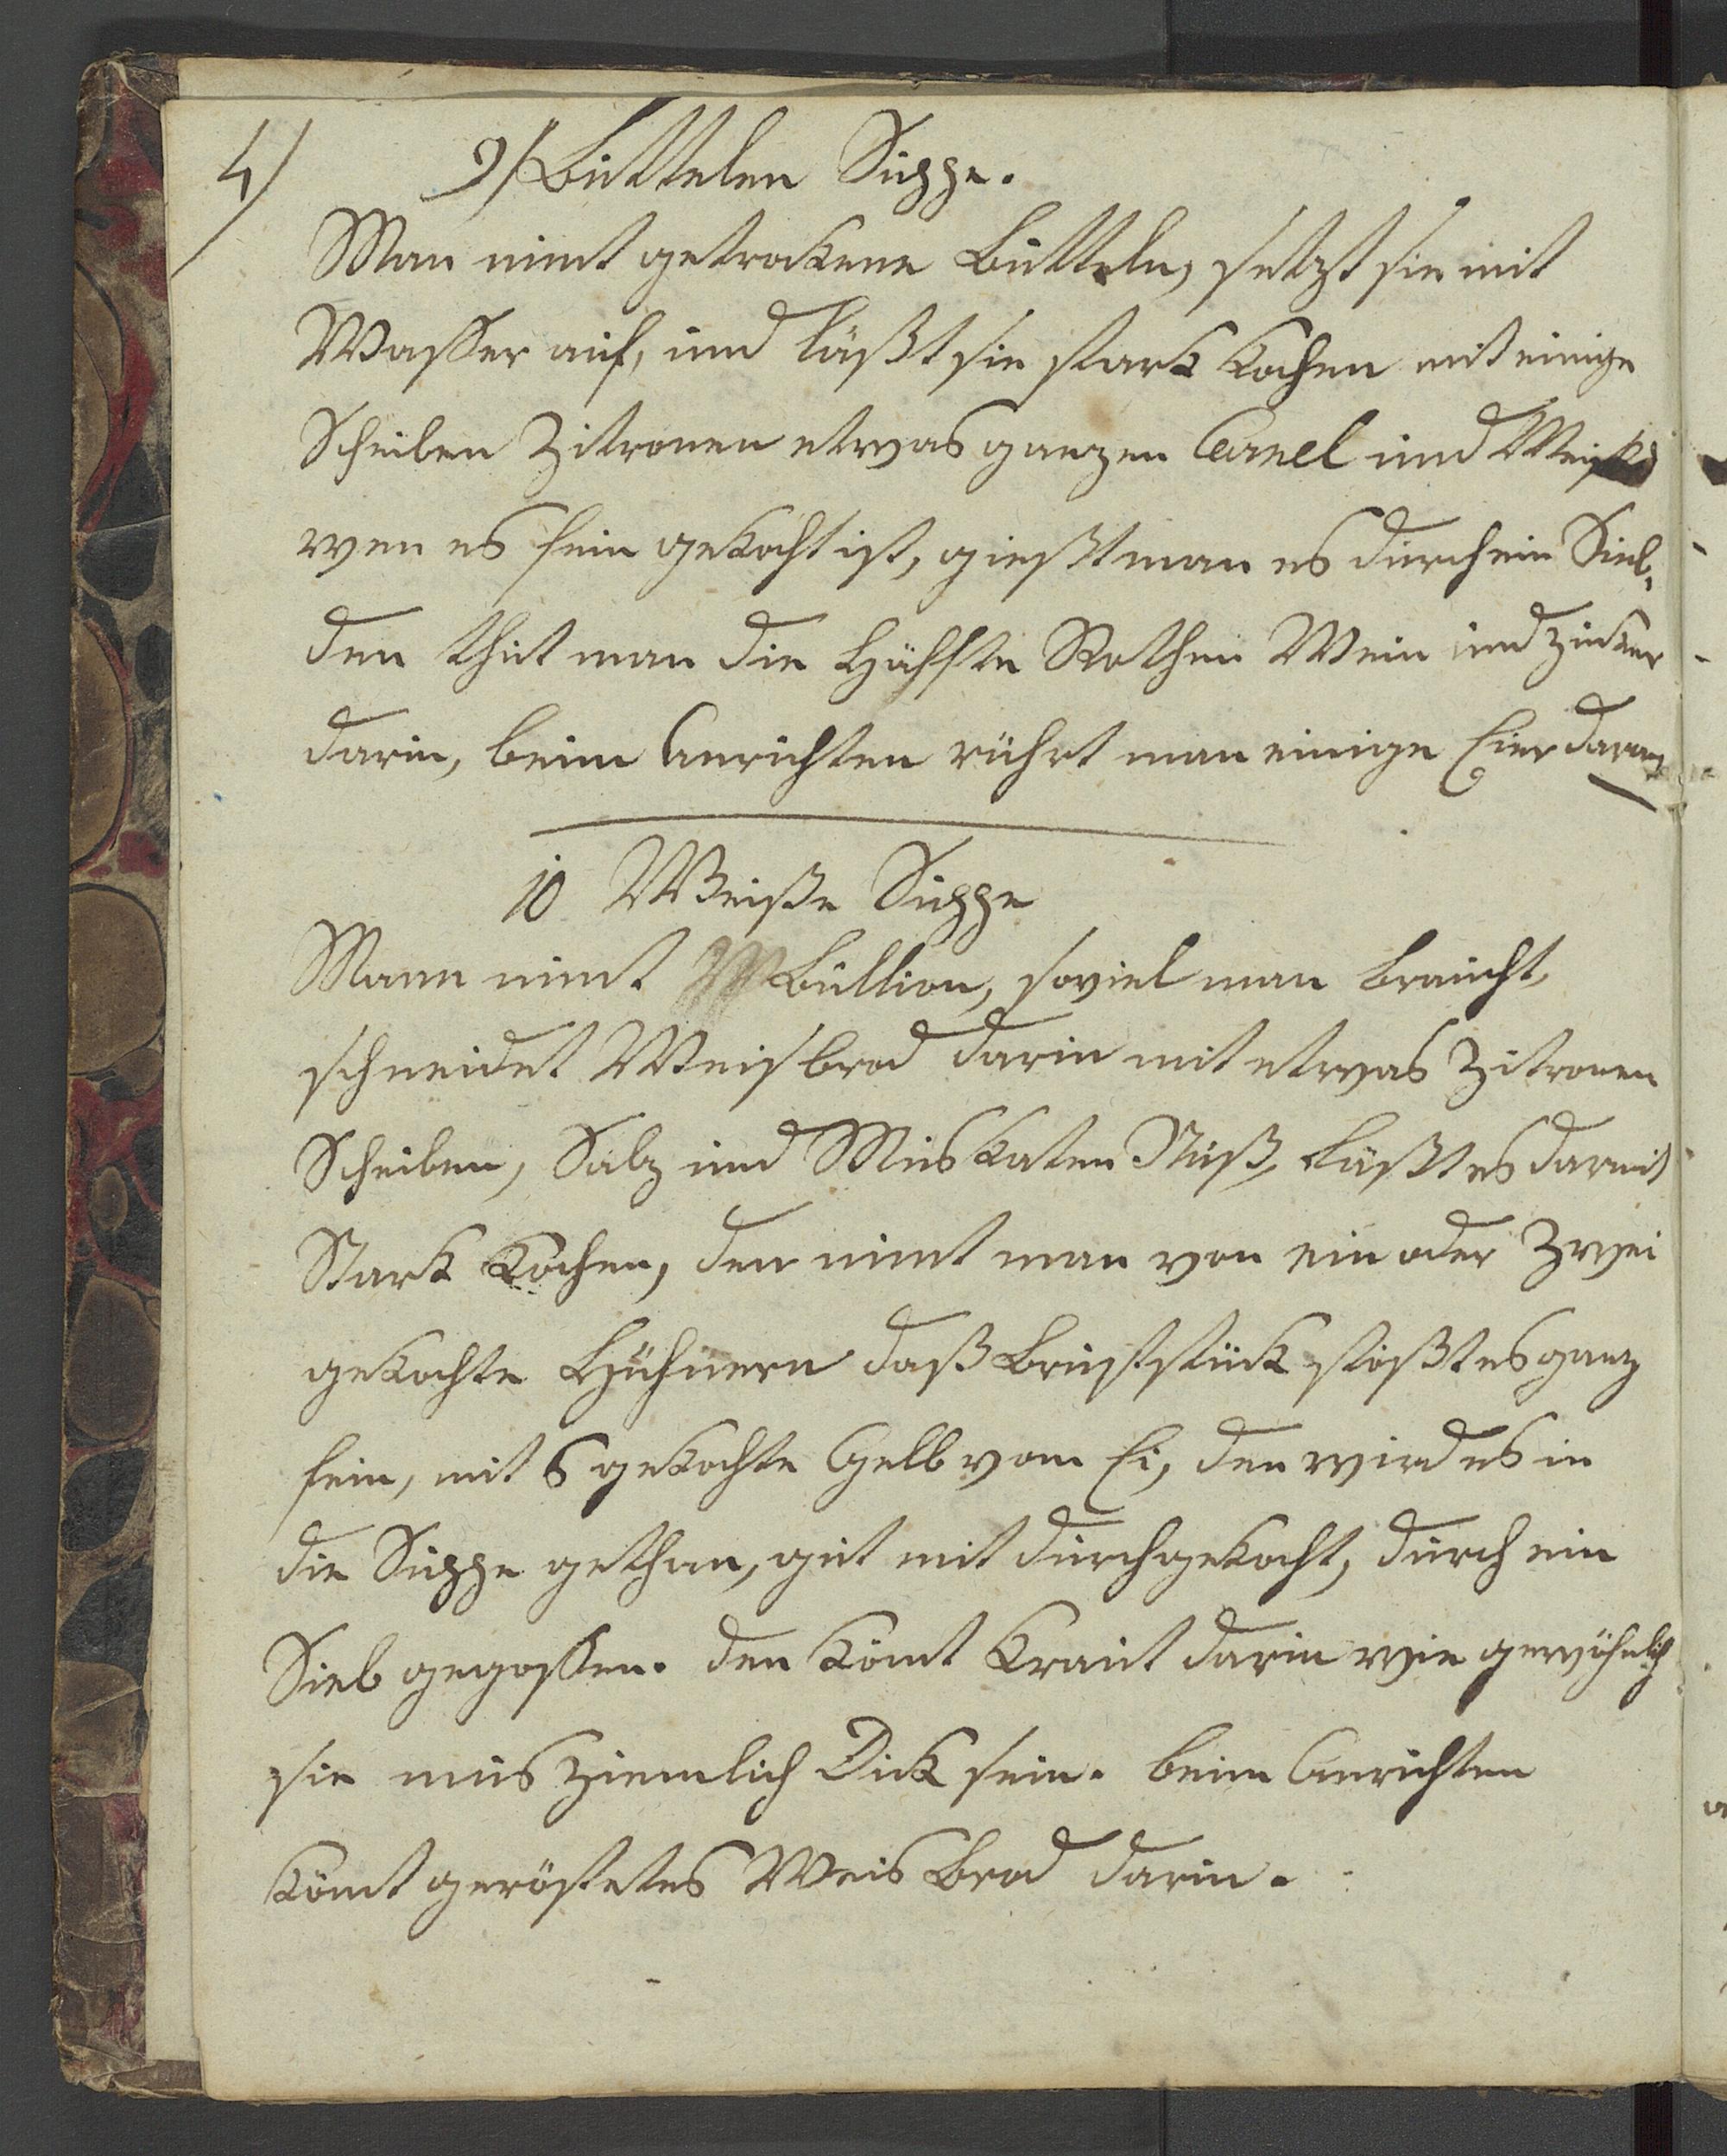 4)
9) Buttelen Suppe.
Man nimt getrockene Butteln, setzt sie mit
Wasser auf, und läßt sie stark kochen mit einige
Scheiben Zitronen etwas ganzen Canel und
wen es fein gekocht ist, gießt man es durch ein Sieb,
den thut man die Hälfte Rothen Wein und Zucker
darin, beim Anrichten rührt man einige Eier daran
10 Weiße Suppe
Mann nimt Bullion, soviel man braucht,
schneidet Weisbrod darin mit etwas Zitronen
Scheiben, Salz und Muskaten Nuß, läßt es darmit
Stark kochen, den nimt man von ein oder Zwei
gekochte Hühnern daß Bruststück stoßt es ganz
fein, mit 6 gekochte Gelb vom Ei, den wird es in
die Suppe gethan, gut mit durchgekocht, durch ein
Sieb gegossen. den kömt Kraut darin wie gewöhnlich
sie mus ziemlich Dick sein. beim Anrichten
kömt geröstetes Weis Brod darin.